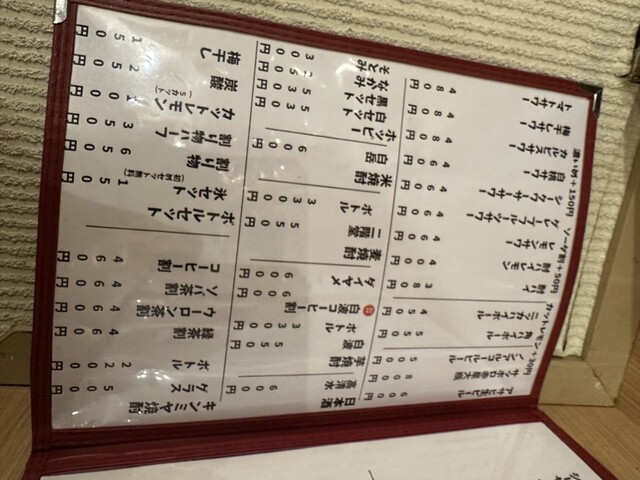 アサヒ生ビール 600円
サッポロ赤星大瓶 800円
ノンアルコールビール 500円
角ハイボール 550円
ニッカハイボール 450円
カットレモン+30円
酎ハイ 380円
酎ハイレモン 400円
レモンサワー 460円
グレープフルーツサワー 460円
シークワーサーサワー
白桃サワー 460円
カルピスサワー
梅干しサワー 480円
トマトサワー 480円
ソーダ割+50円
濃いめ+150円
日本酒
高清水 600円
芋焼酎
白波 550円
ボトル 3300円
白波コーヒー割
ダイヤメ 600円
麦焼酎
二階堂 550円
ボトル 3300円
米焼酎
白岳 600円
ホッピー
白セット 530円
黒セット 530円
なかみ
そとみ 300円
キンミヤ焼酎
グラス 500円
ボトル 2200円
緑茶割 460円
ウーロン茶割 460円
ソバ茶割 460円
コーヒー割 460円
ボトルセット
氷セット(初回セット無料) 150円
割り物 650円
割り物ハーフ 350円
カットレモン(5カット) 100円
炭酸 250円
梅干し 150円